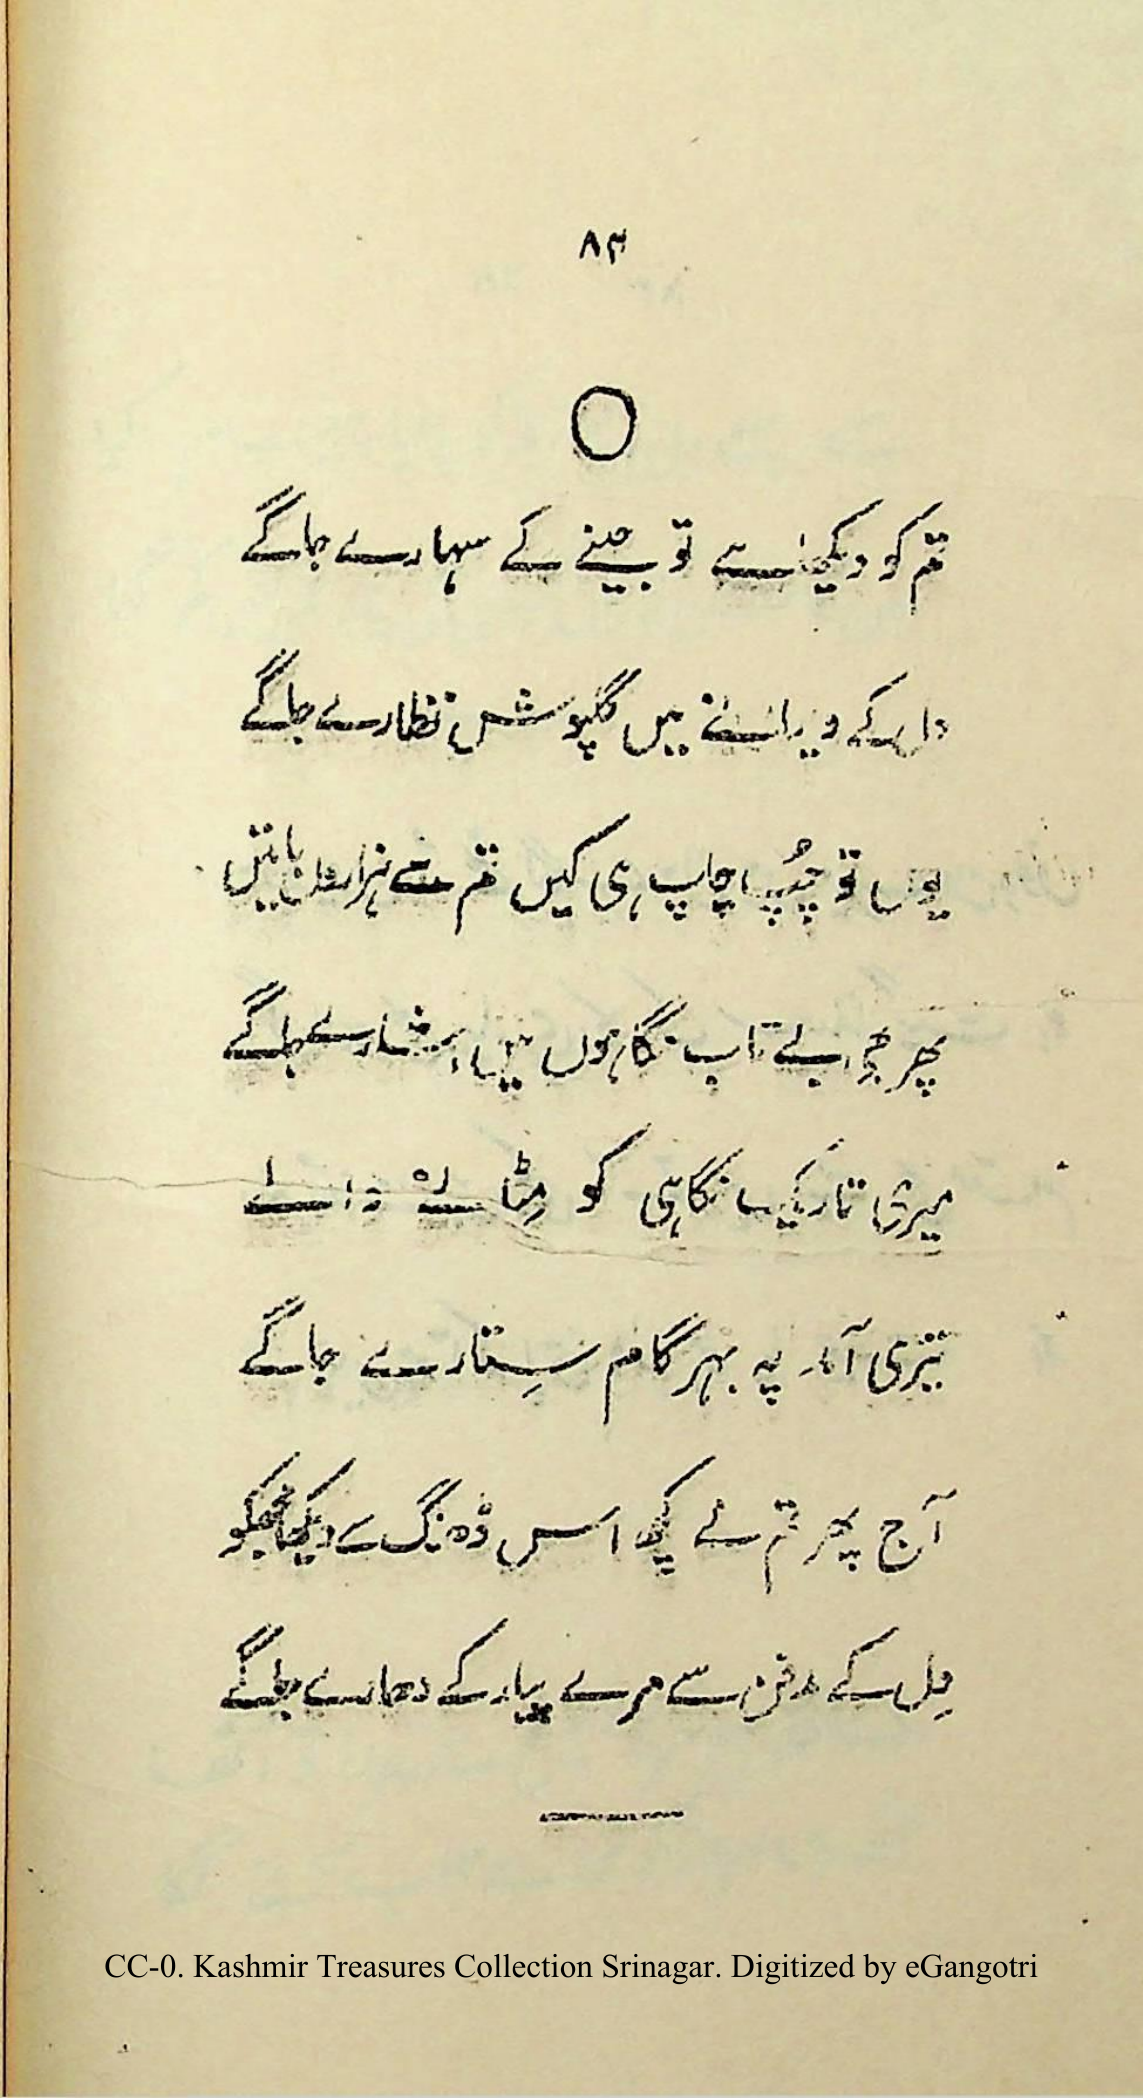 ۸۴
تم کو دیکھا ہے تو جینے کے سہارے جاگے
دل کے ویرانے میں گلپوش نظارے جاگے
یوں تو چُپ چاپ ہی کیں تم سے ہزاروں باتیں
پھر جو بے تاب نگاہوں میں اشارے جاگے
میری تاریک نگاہی کو مِٹانے والے
تیری آمد پہ بہر گام سِتارے جاگے
آج پھر تم نے کچھ اس ڈھنگ سے دیکھا مجھکو
دِل کے مدفن سے مرے پیار کے دھارے جاگے
CC-0. Kashmir Treasures Collection Srinagar. Digitized by eGangotri